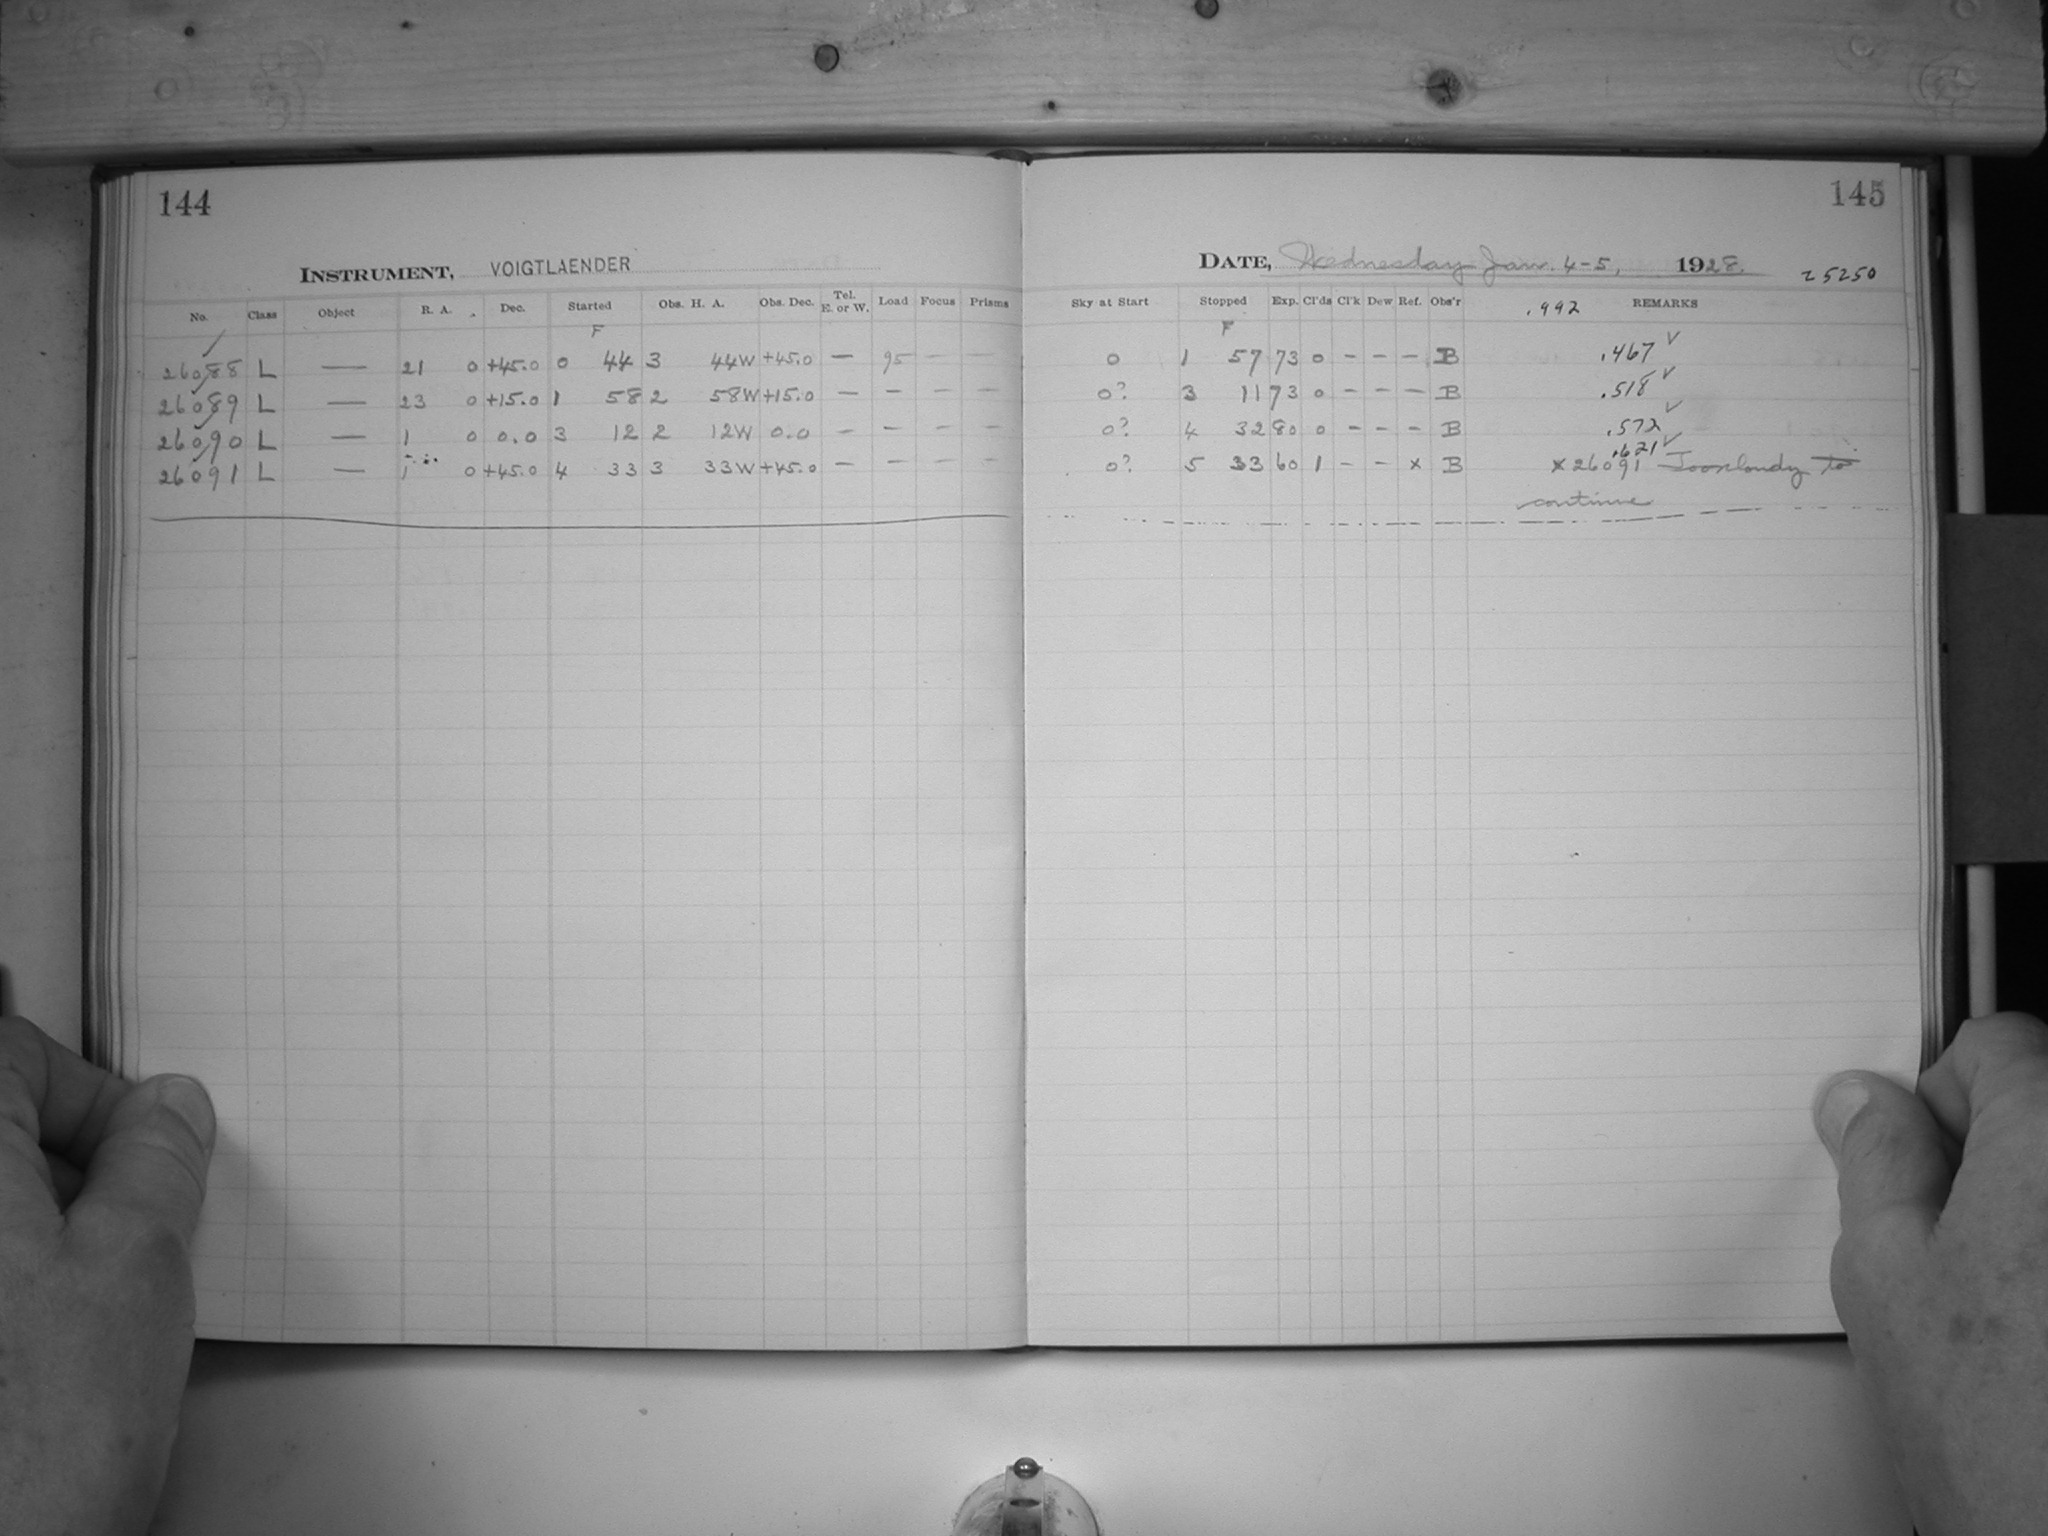 144
INSTRUMENT, VOIGTLAENDER
No. Class Object R. A. Dec. Started Obs. H. A. Obs. Dec. Tel. E. or W. Load Focus Prisms
F
26088 L — 21 0 +45.0 0 44 3 44W +45.0 — 95 — —
26089 L — 23 0 +15.0 1 58 2 58W +15.0 — — — —
26090 L — 1 0 0.0 3 12 2 12W 0.0 — — — —
26091 L — 1 0 +45.0 4 33 3 33W +45.0 — — — —
145
DATE, Wednesday Jan. 4-5, 1928.
25250
Sky at Start Stopped Exp. Cl'ds Cl'k Dew Ref. Obs'r .992 REMARKS
F
0 1 57 73 0 - - - B .467 ✓
0? 3 11 73 0 - - - B .518 ✓
0? 4 32 80 0 - - - B .572 ✓
.621 ✓
0? 5 33 60 1 - - x B x 26091 Too cloudy to
continue